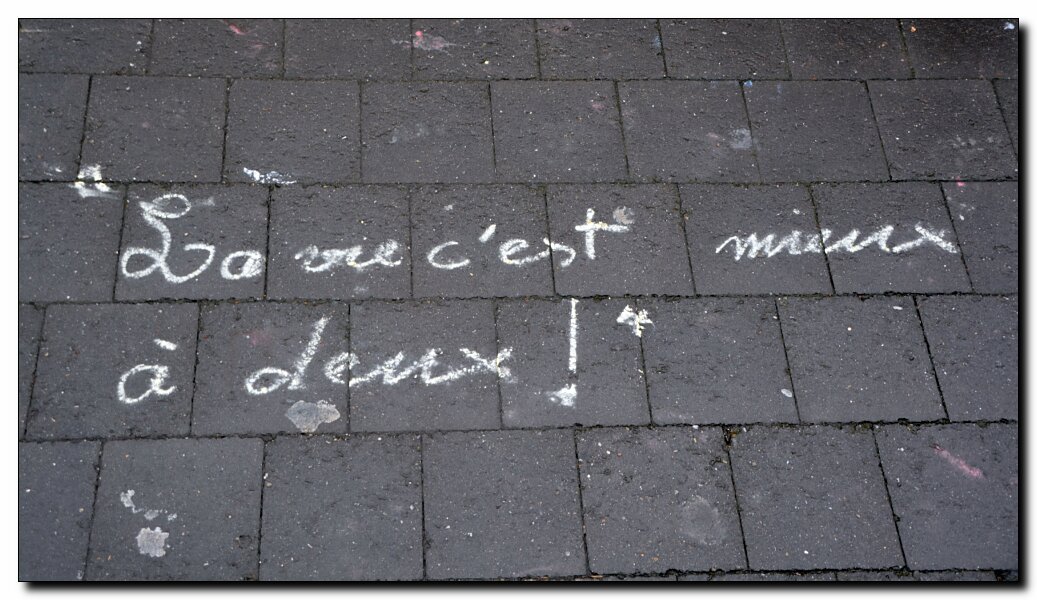 " La vie c'est mieux
à deux ! "